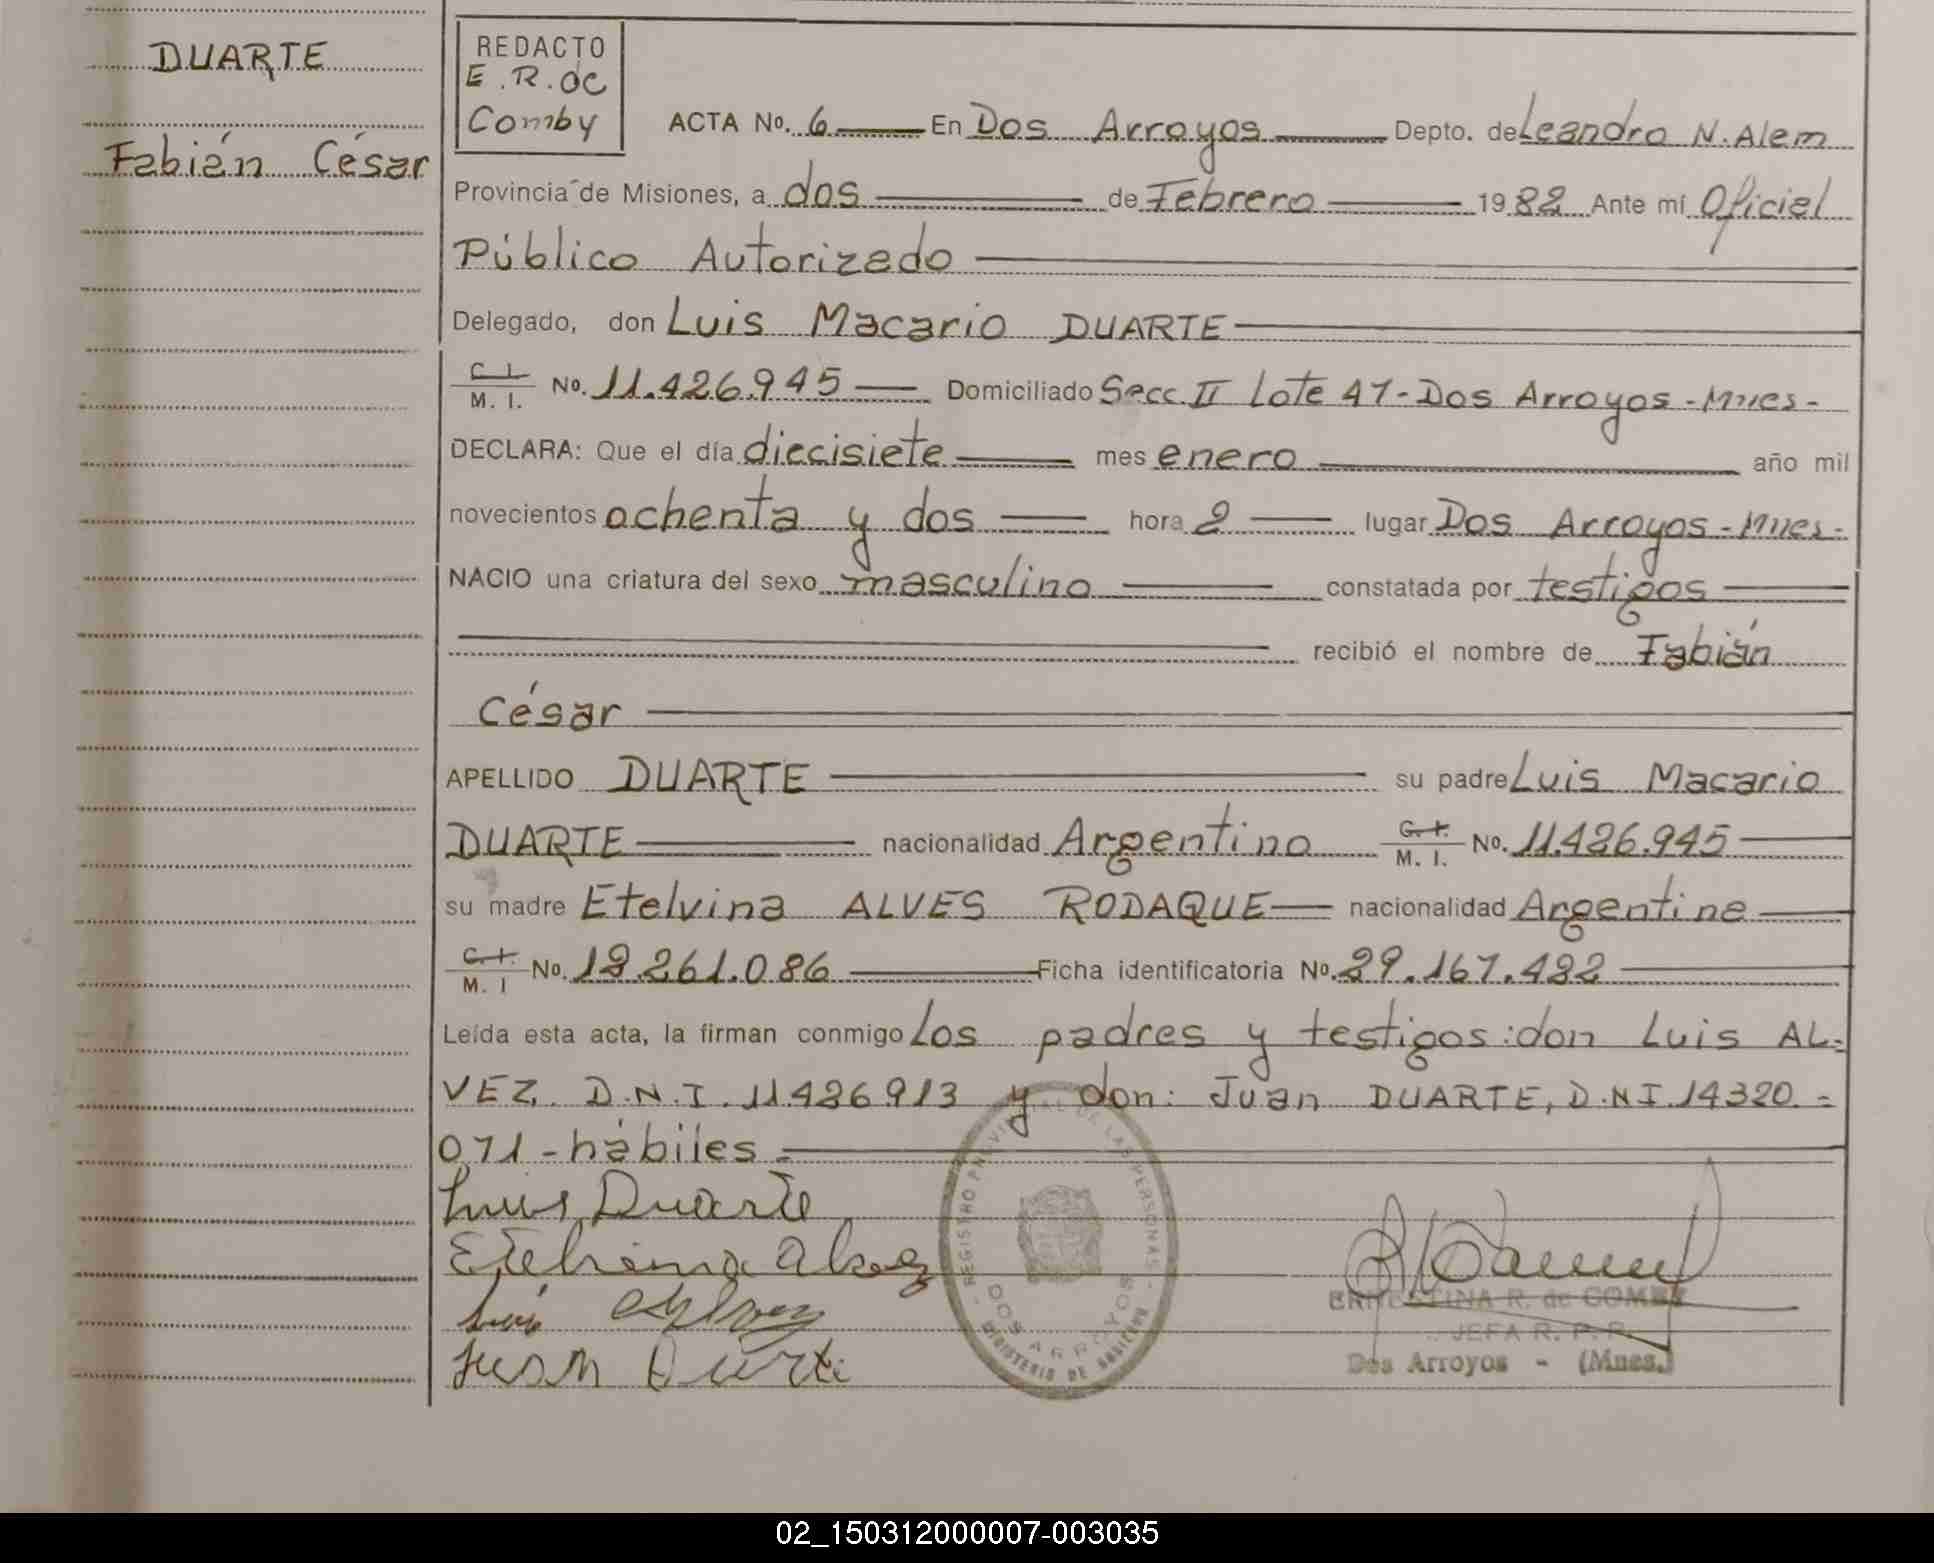 DUARTE
Fabián César
REDACTO
E.R. de
Comby
ACTA No. 6 En Dos Arroyos Depto. de Leandro N. Alem
Provincia de Misiones, a dos de Febrero 1982 Ante mí Oficial
Público Autorizado
Delegado, don Luis Macario DUARTE
C. I. / M. I. No. 11.426.945 Domiciliado Secc. II Lote 47 - Dos Arroyos - Mnes -
DECLARA: Que el día diecisiete mes enero año mil
novecientos ochenta y dos hora 2 lugar Dos Arroyos - Mnes -
NACIO una criatura del sexo masculino constatada por testigos
recibió el nombre de Fabián
César
APELLIDO DUARTE su padre Luis Macario
DUARTE nacionalidad Argentino C. I. / M. I. No. 11.426.945
su madre Etelvina ALVES RODAQUE nacionalidad Argentina
C. I. / M. I No. 12.261.086 Ficha identificatoria No. 29.167.422
Leída esta acta, la firman conmigo los padres y testigos: don Luis AL=
VEZ D.N.I. 11426913 y don: Juan DUARTE, D.N.I 14320 =
071 - hábiles =
Luis Duarte
Etelvina Alvez
Luis
Juan Duarte
REGISTRO PROVINCIAL DE LAS PERSONAS
DOS ARROYOS
MINISTERIO DE GOBIERNO
ERNESTINA R. de COMBY
JEFA R. P. P.
Dos Arroyos - (Mnes.)
02_150312000007-003035